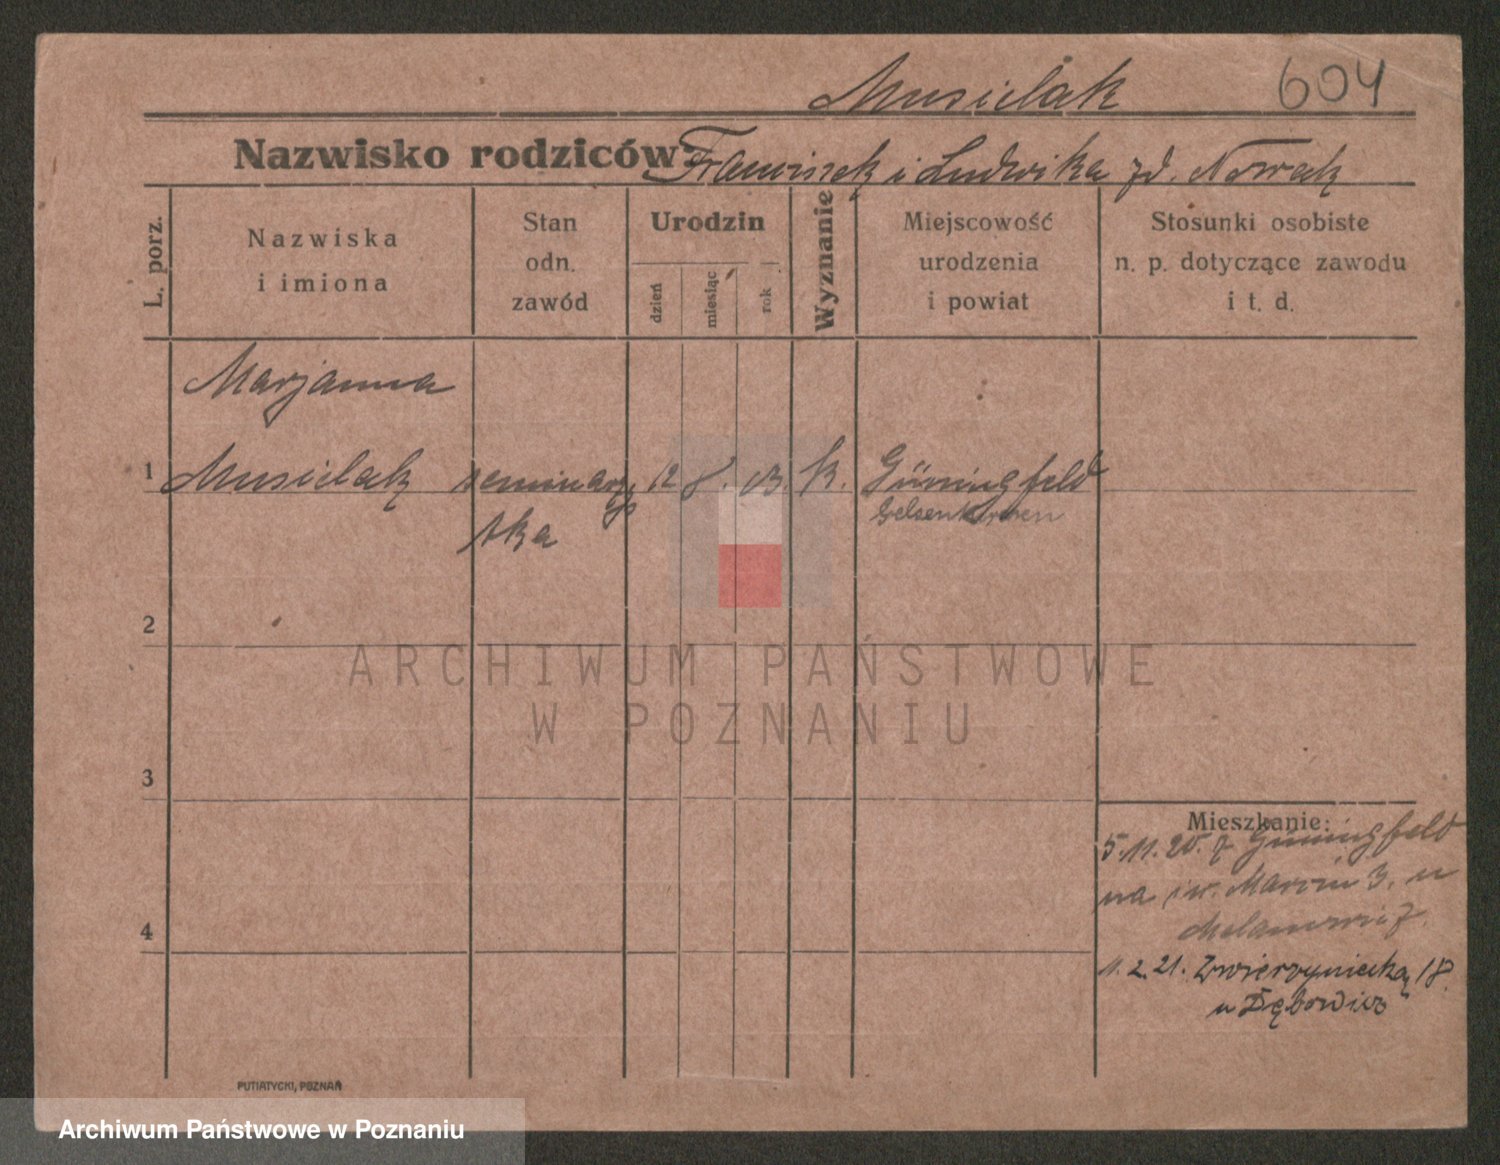 Musielak
604
Nazwisko rodziców: Franciszek i Ludwika zd. Nowak
L. porz.
Nazwiska
i imiona
Stan
odn.
zawód
Urodzin
dzień
miesiąc
rok
Wyznanie
Miejscowość
urodzenia
i powiat
Stosunki osobiste
n. p. dotyczące zawodu
i t. d.
Marjanna
1 Musielak seminarzy 12 8. 03. K. Günnigfeld
stka Gelsenkirchen
2
3
4
Mieszkanie:
5.11.20. z Günnigfeld
na św. Marcin 3. u
11.2.21. Zwierzyniecką 18.
u Dębowicz
PUTIATYCKI, POZNAŃ
ARCHIWUM PAŃSTWOWE
W POZNANIU
Archiwum Państwowe w Poznaniu